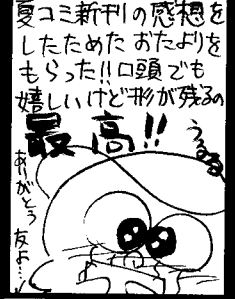 夏コミ新刊の感想を
したためたおたよりを
もらった!!口頭でも
嬉しいけど形が残るの
最高!!
うるる
ありがとう
友よ…